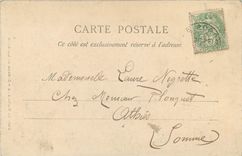 CARTE POSTALE
Ce côté est exclusivement réservé à l'adresse
Mademoiselle Laure Negrotte
Chez Monsieur Plonquet
Athies
Somme